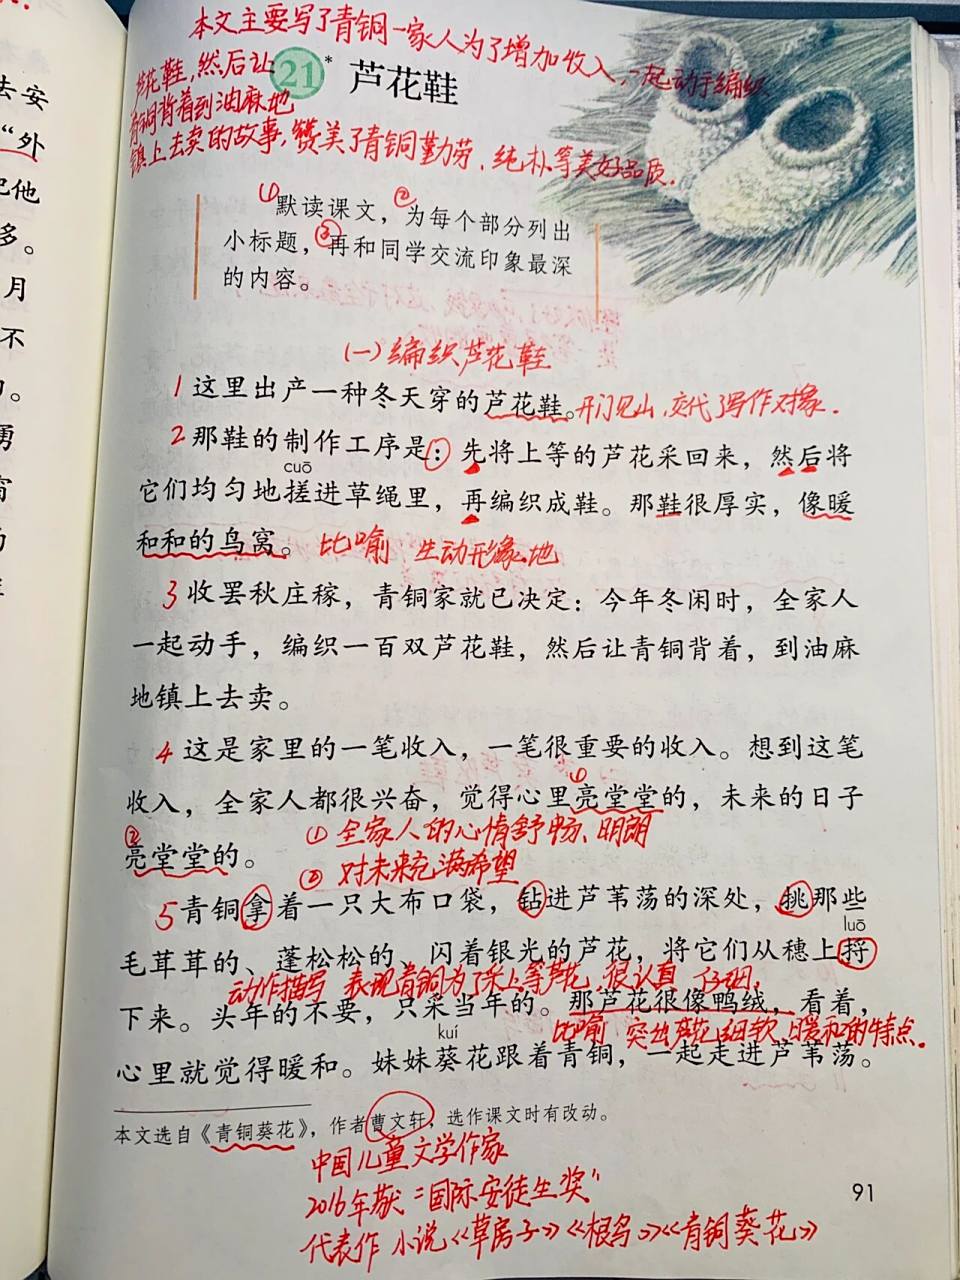 去安
“外
把他
多。
月
不
本文主要写了青铜一家人为了增加收入,一起动手编织
芦花鞋,然后让
青铜背着到油麻地
镇上去卖的故事,赞美了青铜勤劳、纯朴等美好品质.
21* 芦花鞋
① ②
默读课文,为每个部分列出
小标题,③再和同学交流印象最深
的内容。
(一)编织芦花鞋
1 这里出产一种冬天穿的芦花鞋。开门见山,交代了写作对象.
2 那鞋的制作工序是:先将上等的芦花采回来,然后将
cuō
它们均匀地搓进草绳里,再编织成鞋。那鞋很厚实,像暖
和和的鸟窝。 比喻 生动形象地
3 收罢秋庄稼,青铜家就已决定:今年冬闲时,全家人
一起动手,编织一百双芦花鞋,然后让青铜背着,到油麻
地镇上去卖。
4 这是家里的一笔收入,一笔很重要的收入。想到这笔
①
收入,全家人都很兴奋,觉得心里亮堂堂的,未来的日子
② ① 全家人的心情舒畅、明朗
亮堂堂的。
② 对未来充满希望
5 青铜拿着一只大布口袋,钻进芦苇荡的深处,挑那些
luō
毛茸茸的、蓬松松的、闪着银光的芦花,将它们从穗上捋
动作描写 表现青铜为了采上等芦花,很认真、仔细.
下来。头年的不要,只采当年的。那芦花很像鸭绒,看着,
kuí
比喻 突出芦花细软、暖和的特点.
心里就觉得暖和。妹妹葵花跟着青铜,一起走进芦苇荡。
本文选自《青铜葵花》,作者曹文轩,选作课文时有改动。
中国儿童文学作家
2016年获“国际安徒生奖”
91
代表作 小说《草房子》《根鸟》《青铜葵花》